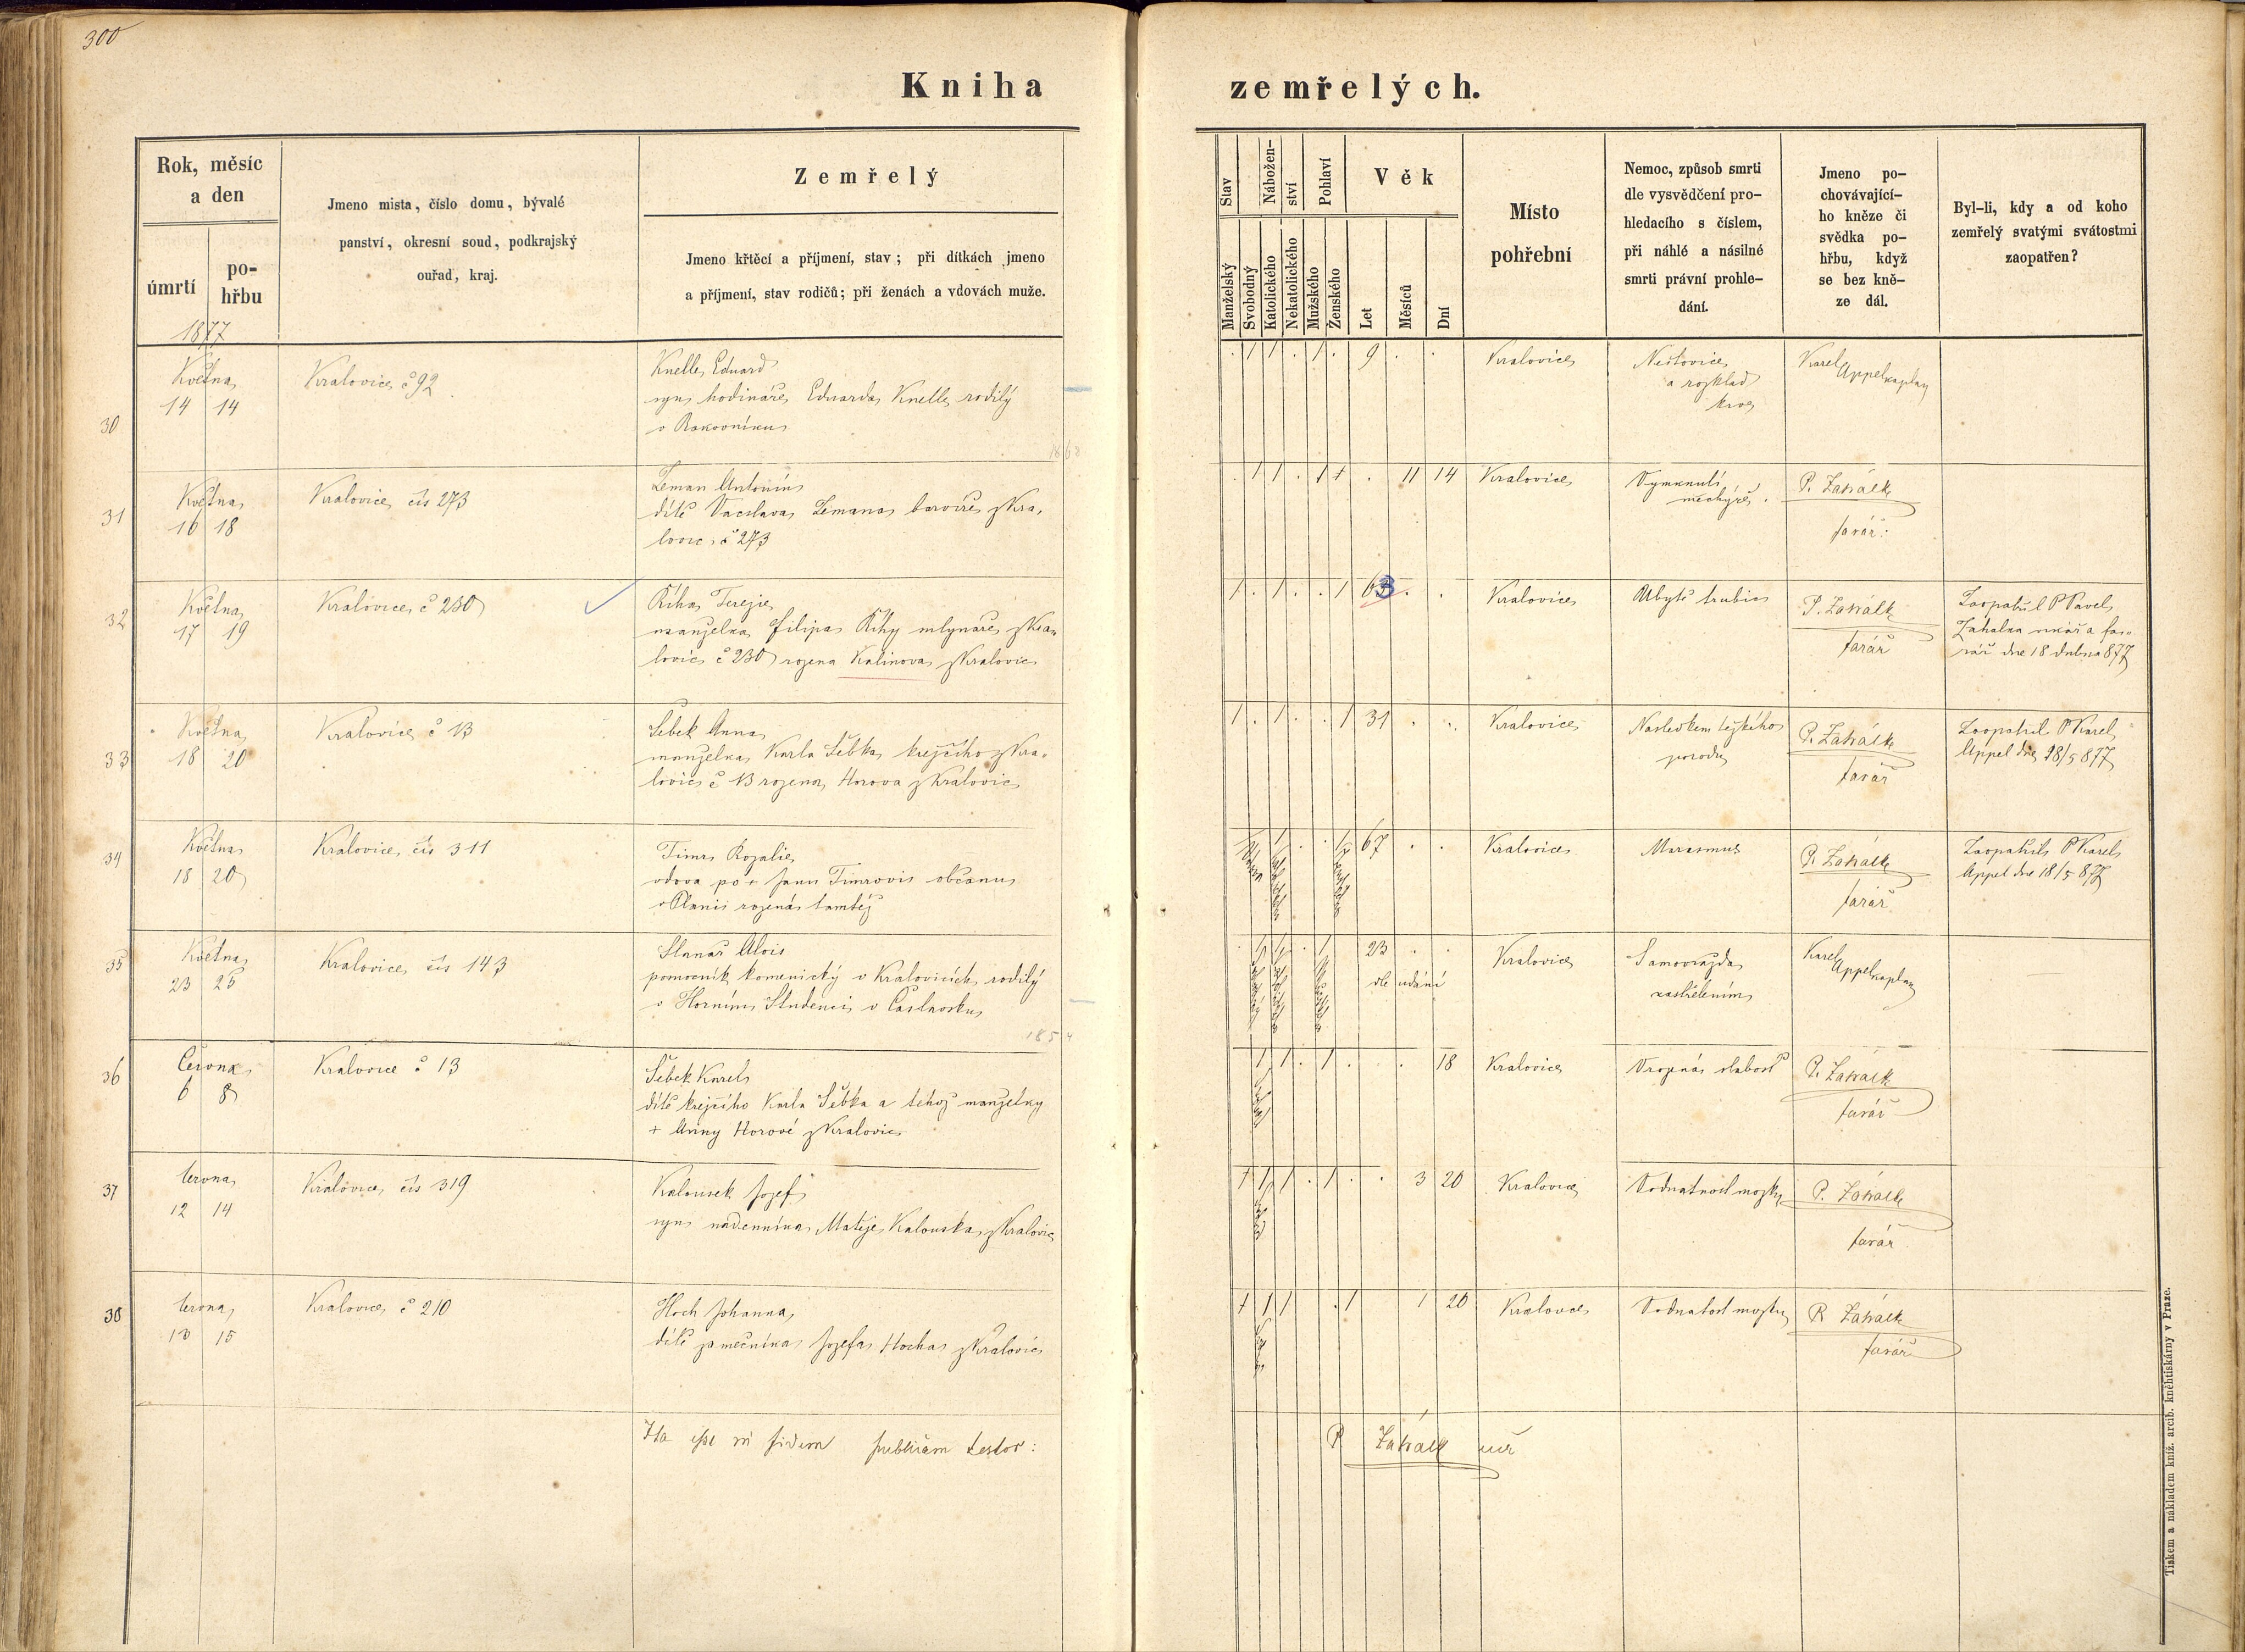 300
Kniha zemřelých.
Rok, měsíc
a den
úmrtí
po-
hřbu
1877
Jmeno mista, číslo domu, bývalé
panství, okresní soud, podkrajský
ouřad, kraj.
Zemřelý
Jmeno křtěcí a příjmení, stav; při dítkách jmeno
a příjmení, stav rodičů; při ženách a vdovách muže.
Stav
Manželský
Svobodný
Nábožen-
ství
Katolického
Nekatolického
Pohlaví
Mužského
Ženského
Věk
Let
Měsíců
Dní
Místo
pohřební
Nemoc, způsob smrti
dle vysvědčení pro-
hledacího s číslem,
při náhlé a násilné
smrti právní prohle-
dání.
Jmeno po-
chovávající-
ho kněze či
svědka po-
hřbu, když
se bez kně-
ze dál.
Byl-li, kdy a od koho
zemřelý svatými svátostmi
zaopatřen?
30
Května
14 14
Kralovice č 92
Knelle Eduard
syn hodináře Eduarda Knelle rodilý
v Rakovníku
1868
1 1 1 9
Kralovice
Neštovice
a rozklad
krve
Karel Appel kaplan
31
Května
16 18
Kralovice čís 273
Zeman Antonín
dítě Vacslava Zemana barvíře z Kra-
lovic č 273
1 1 1 11 14
Kralovice
Vymknutí
mechýře.
P. Zahálk
farář.
32
Května
17 19
Kralovice č 230
Říha Terezie
manželka Filipa Říhy mlynáře z Kra-
lovic č 230 rozena Kalinova z Kralovic
1 1 1 63
Kralovice
Ubytě
P. Zahálk
farář
Zaopatřil P Pavel
Zahalka vikář a fa-
rář dne 18 dubna 877
33
Května
18 20
Kralovice č 13
Šebek Anna
manželka Karla Šebka krejčího z Kra-
lovic č 13 rozena Horova z Kralovic
1 1 1 31
Kralovice
Nasledkem težkého
porodu
P. Zahálk
farář
Zaopatřil P Karel
Appel dne 18/5 877
34
Května
18 20
Kralovice čís 311
Timr Rozalie
vdova po + Janu Timrovi občanu
v Plani rozená tamtéž
1 1 67
Kralovice
Marasmus
P. Zahálk
farář
Zaopatřil P Karel
Appel dne 18/5 877
35
Května
23 25
Kralovice čís 143
Slanař Alois
pomocník komenický v Kralovicích rodilý
v Horním Studenci v Čáslavsku
1854
1 1 1 23
dle udání
Kralovice
Samovražda
zastřelením
Karel Appel kaplan
36
Června
6 8
Kralovice č 13
Šebek Karel
dítě krejčího Karla Šebka a tehož manželky
+ Anny Horové z Kralovic
1 1 1 18
Kralovice
Vrozená slabost
P. Zahálk
farář
37
Června
12 14
Kralovice čís 319
Kalousek Jozef
syn nadenníka Matěje Kalouska z Kralovic
1 1 1 3 20
Kralovice
Vodnatnost mozku
P. Zahálk
farář
38
Června
13 15
Kralovice č 210
Hoch Johanna
dítě zamečníka Jozefa Hocha z Kralovic
1 1 1 1 20
Kralovice
Vodnatost mozku
P. Zahálk
farář
Ita esse in fidem publicam testor:
P Zahálk
Tiskem a nákladem kníž. arcib. kněhtiskárny v Praze.